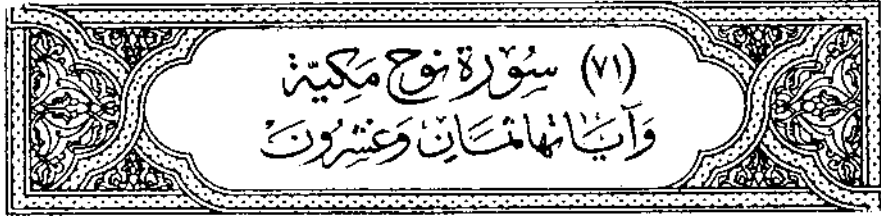 (٧١) سُورَة نوح مَكِيّة
وَآيَاتها ثمَانِ وَعشرُونَ